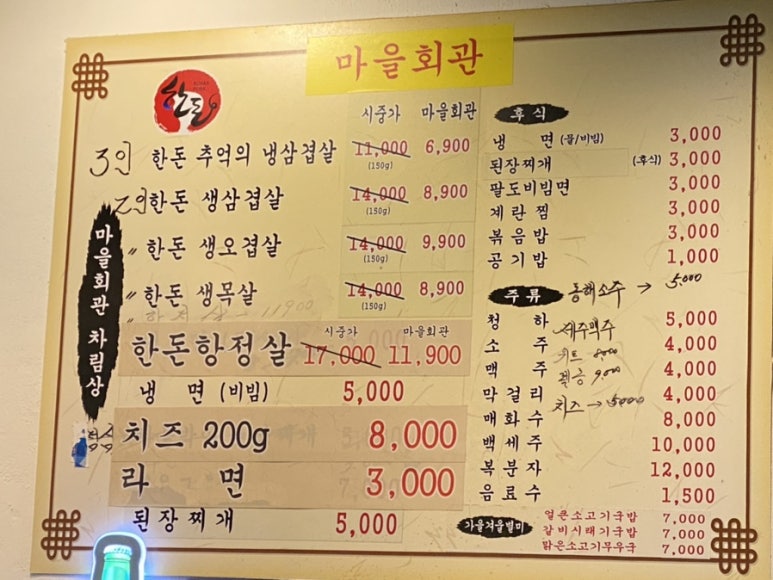 마을회관
한돈
시중가 마을회관
3인 한돈 추억의 냉삼겹살 11,000 6,900
(150g)
2인 한돈 생삼겹살 14,000 8,900
(150g)
〃 한돈 생오겹살 14,000 9,900
(150g)
〃 한돈 생목살 14,000 8,900
(150g)
11900
시중가 마을회관
한돈항정살 17,000 11,900
냉 면 (비빔) 5,000
치즈 200g 8,000
라 면 3,000
된장찌개 5,000
마을회관 차림상
후 식
냉 면 (물/비빔) 3,000
된장찌개 (후식) 3,000
팔도비빔면 3,000
계란찜 3,000
볶음밥 3,000
공기밥 1,000
주 류 동해소주 → 5,000
청 하 5,000
제주맥주
소 주 4,000
8000
맥 주 4,000
9,000
막걸리 4,000
치즈 → 5000
매화수 8,000
백세주 10,000
복분자 12,000
음료수 1,500
가을겨울별미
얼큰소고기국밥 7,000
갈비시래기국밥 7,000
맑은소고기무우국 7,000